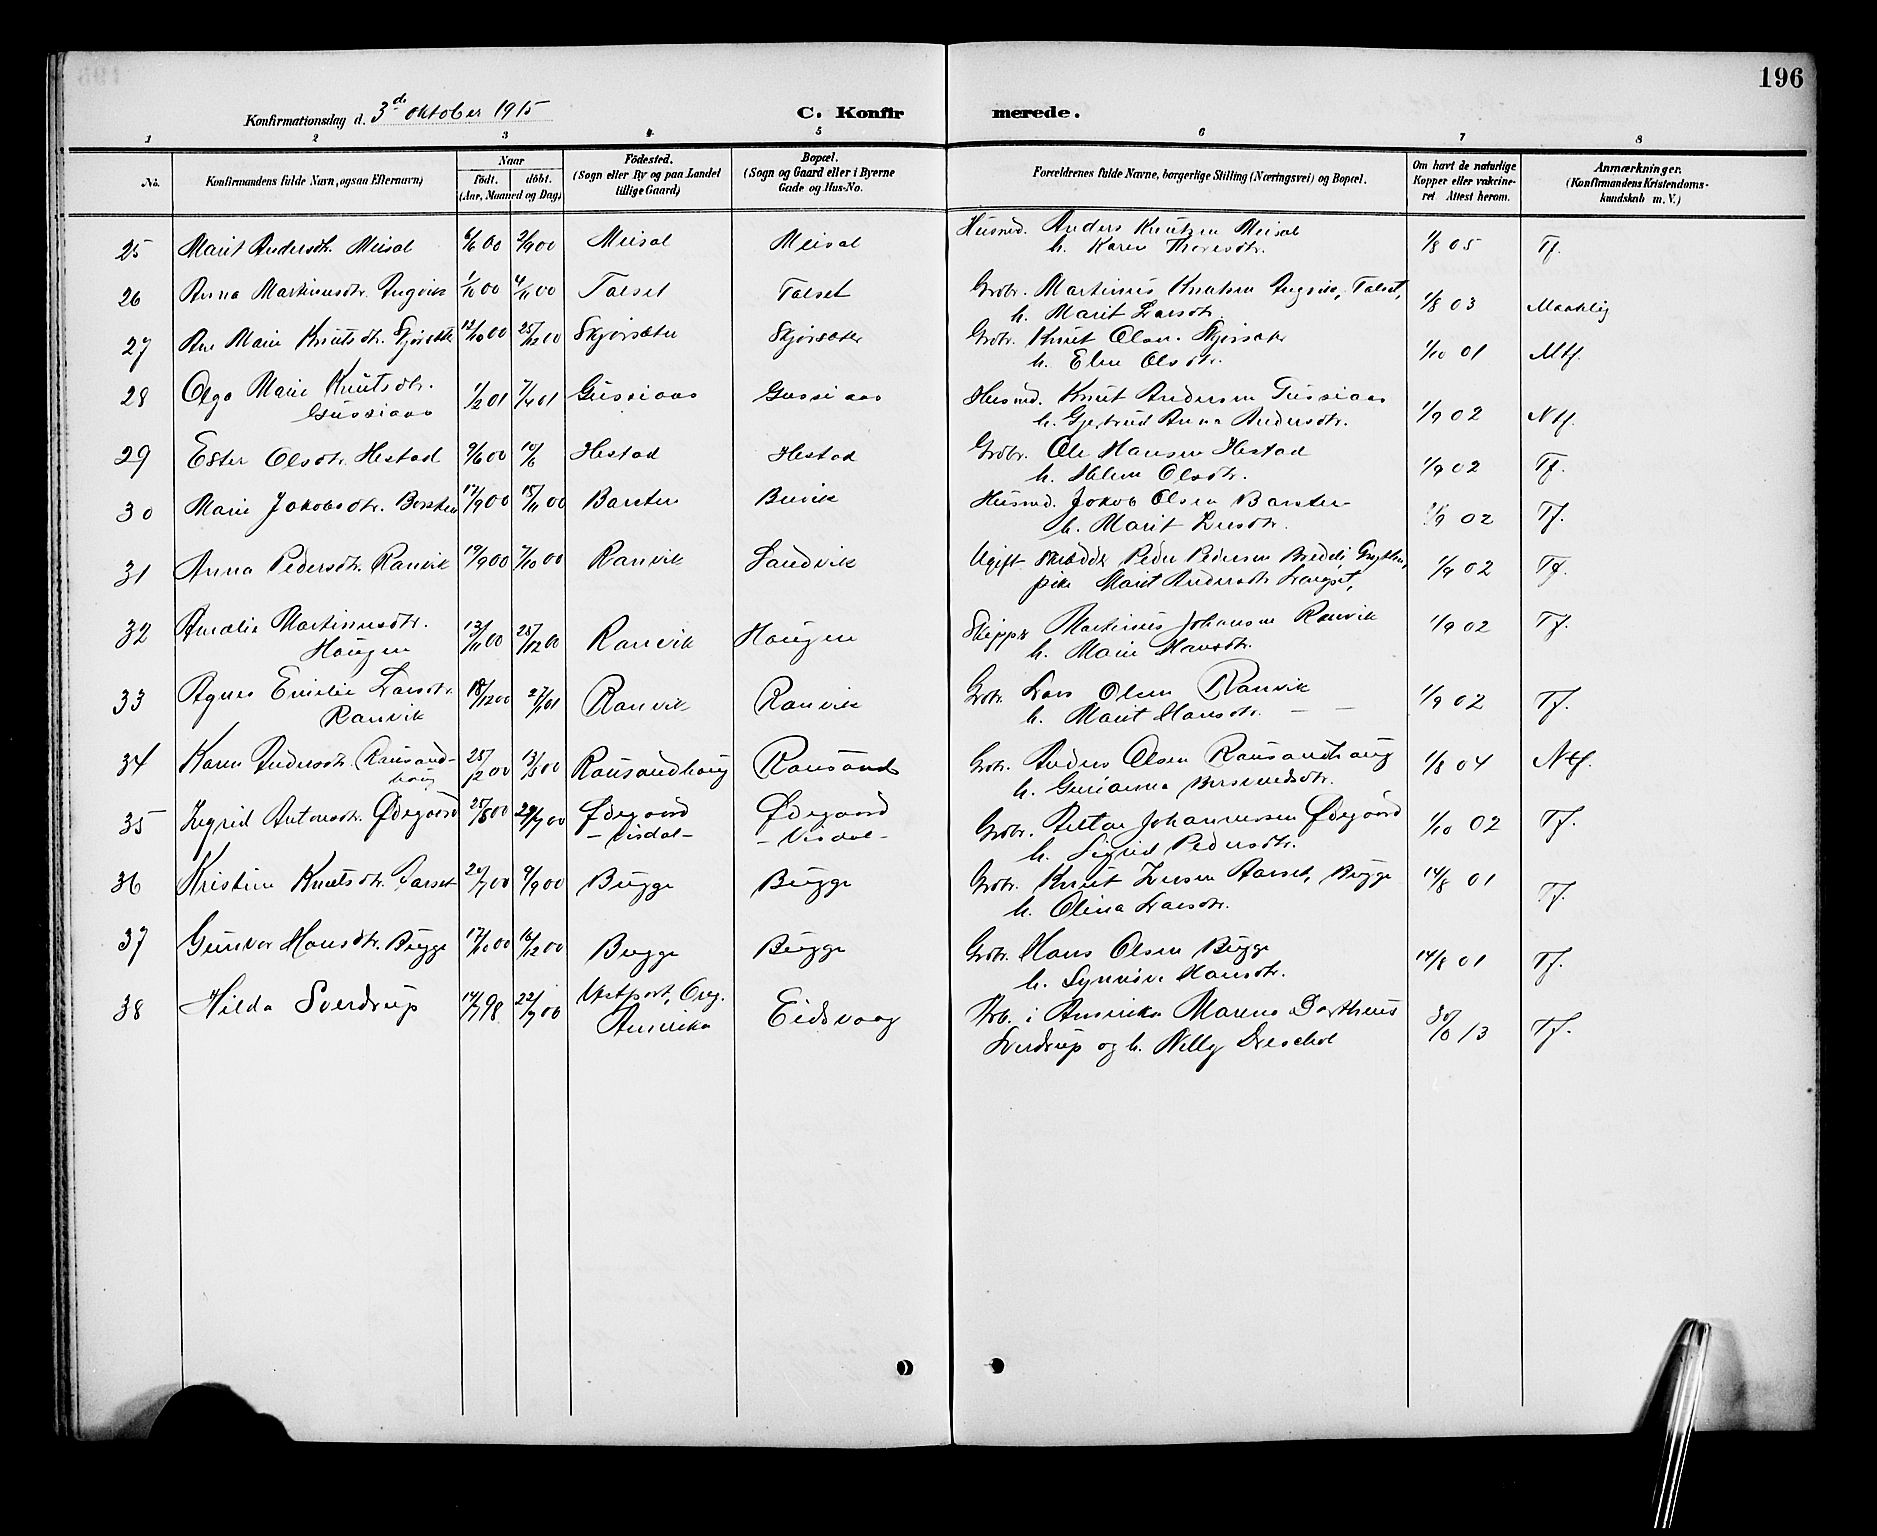 196
Konfirmationsdag d. 3d. oktober 1915
C. Konfirmerede.
1 2 3 4 5 6 7 8
No. Konfirmandens fulde Navn, ogsaa Efternavn) Naar Födt. döbt. (Aar, Maaned og Dag) Födested. (Sogn eller By og paa Landet tillige Gaard) Bopæl. (Sogn og Gaard eller i Byerne Gade og Hus-No. Forældrenes fulde Navne, borgerlige Stilling (Næringsvei) og Bopæl. Om havt de naturlige Kopper eller vakcineret Attest herom. Anmærkninger. (Konfirmandens Kristendomskundskab m. V.)
25 Marit Andersdtr. Meisal 6/6 00 2/9 00 Meisal Meisal Husmd. Anders Knutsen Meisal
h. Karen Theresdtr. 1/8 05 Tf.
26 Anna Martinusdtr. Ingvik 1/10 00 4/11 00 Talset Talset Grdbr. Martinus Knutsen Ingvik, Talset,
h. Marit Larsdtr. 1/8 03 Maadelig
27 Ane Marie Knutsdtr. Skjørsæter 12/10 00 25/12 00 Skjørsæter Skjørsæter Grdbr. Knut Olsen Skjørsæter
h. Elen Olsdtr. 1/10 01 Mtf.
28 Olga Marie Knutsdtr.
Gussiaas 1/2 01 7/4 01 Gussiaas Gussiaas Husmd. Knut Andersen Gussiaas
h. Gjertrud Anna Andersdtr. 1/9 02 Ntf.
29 Ester Olsdtr. Hestad 9/6 00 10/6 Hestad Hestad Grdbr. Ole Hansen Hestad
h. Olsdtr. 1/9 02 Tf.
30 Marie Jakobsdtr. Barsten 17/9 00 18/11 00 Barsten Buvik Husmd. Jakob Olsen Barsten
h. Marit 1/9 02 Tf.
31 Anna Pedersdtr. Ranvik 19/9 00 7/10 00 Ranvik Sandvik Ugift skrædder Peder Pedersen
pike Marit Andersdtr. Langset, 1/9 02 Tf.
32 Amalie Martinusdtr.
Haugen 13/11 00 28/12 00 Ranvik Haugen Skipper Martinus Johansen Ranvik
h. Marie Hansdtr. 1/9 02 Tf.
33 Agnes Emilie Larsdtr.
Ranvik 18/12 00 27/1 01 Ranvik Ranvik Grdbr. Lars Olsen Ranvik
h. Marit Hansdtr. — — 1/9 02 Tf.
34 Karen Andersdtr. Rausand-
haug 25/2 00 Rausandhaug Rausand Grdbr. Anders Olsen Rausandhaug
h. Gurianna 1/8 04 Ntf.
35 Ingrid Antonsdtr. Ødegaard Ødegaard
- Visdal - Ødegaard
- Visdal - Grdbr. Anton Johannessen Ødegaard
h. Sigrid Pedersdtr. 1/10 02 Tf.
36 Kristine Knutsdtr. Aarset 9/9 00 Bugge Bugge Grdbr. Knut Aarset, Bugge
h. Olina Larsdtr. 14/8 01 Tf.
37 Gunvor Hansdtr. Bugge 17/10 00 16/12 00 Bugge Bugge Grdbr. Hans Olsen Bugge
h. Synnøve Hansdtr. 14/8 01 Tf.
38 Hilda Sverdrup 14/7 98 22/7 00 Westport, Oreg.
Amerika Eidsvaag Arb. i Amerika Marens Dortheus
Sverdrup og h. Nelly Dreschel 30/6 13 Tf.